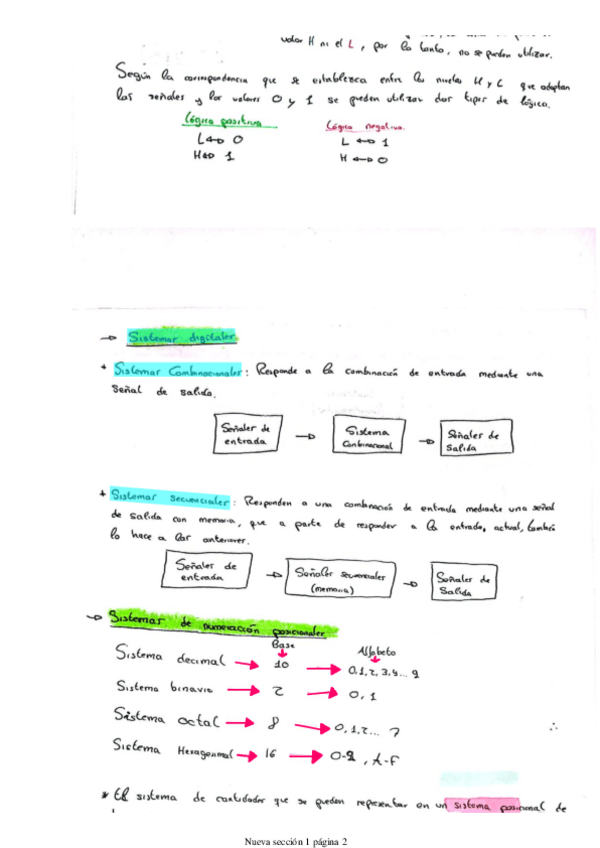 valor H ni el L, por lo tanto, no se pueden utilizar.
Según la correspondencia que se establezca entre los niveles H y L que adoptan
las señales y los valores 0 y 1 se pueden utilizar dos tipos de lógica.
Lógica positiva
Lógica negativa
L ↔ 0
L ↔ 1
H ↔ 1
H ↔ 0
→ Sistemas digitales
* Sistemas Combinacionales: Responde a la combinación de entrada mediante una
Señal de salida.
Señales de entrada → Sistema Combinacional → Señales de Salida
* Sistemas Secuenciales: Responden a una combinación de entrada mediante una señal
de salida con memoria, que a parte de responder a la entrada, actual, también
lo hace a las anteriores.
Señales de entrada → Señales secuenciales (memoria) → Señales de Salida
→ Sistemas de numeración posicionales
Base
Alfabeto
Sistema decimal → 10 → 0,1,2,3,4... 9
Sistema binario → 2 → 0,1
Sistema octal → 8 → 0,1,2... 7
Sistema Hexagesimal → 16 → 0-9, A-F
* El sistema de cantidades que se pueden representar en un sistema posicional de
Nueva sección 1 página 2